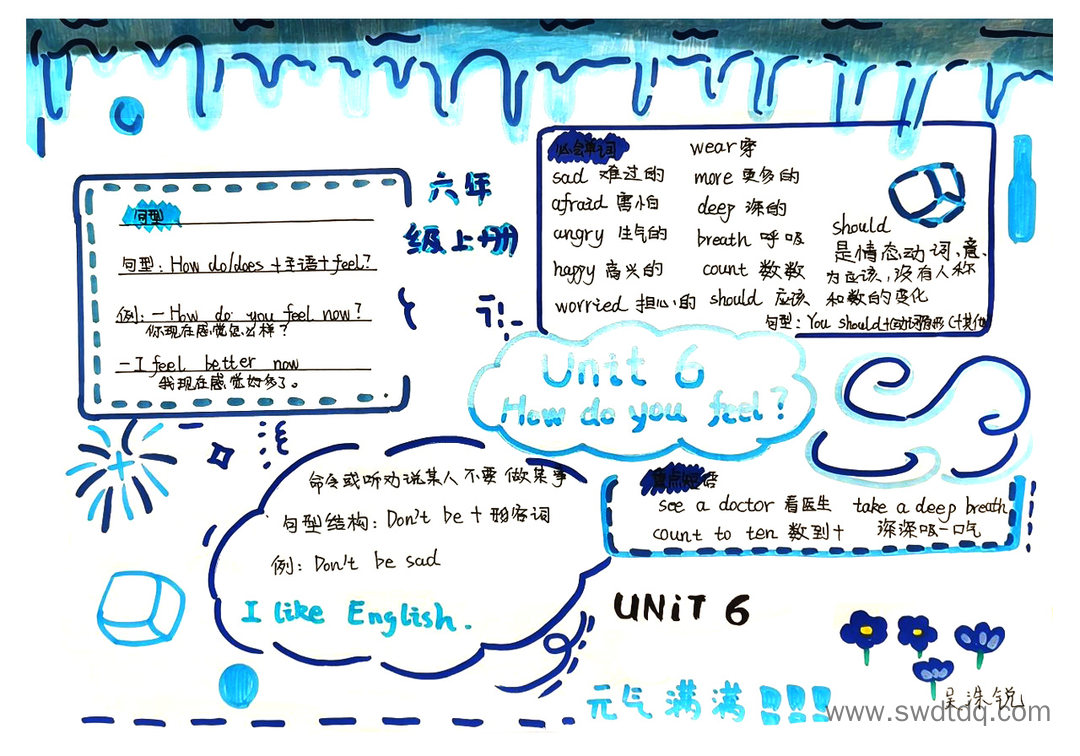 六年
级上册
句型
句型：How do/does +主语+feel?
例：-How do you feel now?
你现在感觉怎么样？
-I feel better now
我现在感觉好多了。
必会单词
sad 难过的
afraid 害怕
angry 生气的
happy 高兴的
worried 担心的
wear 穿
more 更多的
deep 深的
breath 呼吸
count 数数
should 应该
should
是情态动词，意
为应该，没有人称
和数的变化
句型：You should+动词原形(+其他
Unit 6
How do you feel?
命令或听劝说某人不要做某事
句型结构：Don't be + 形容词
例：Don't be sad
I like English.
重点短语
see a doctor 看医生
take a deep breath
count to ten 数到十
深深吸一口气
UNiT 6
元气满满!!!!
吴洙锐
www.swdtdq.com